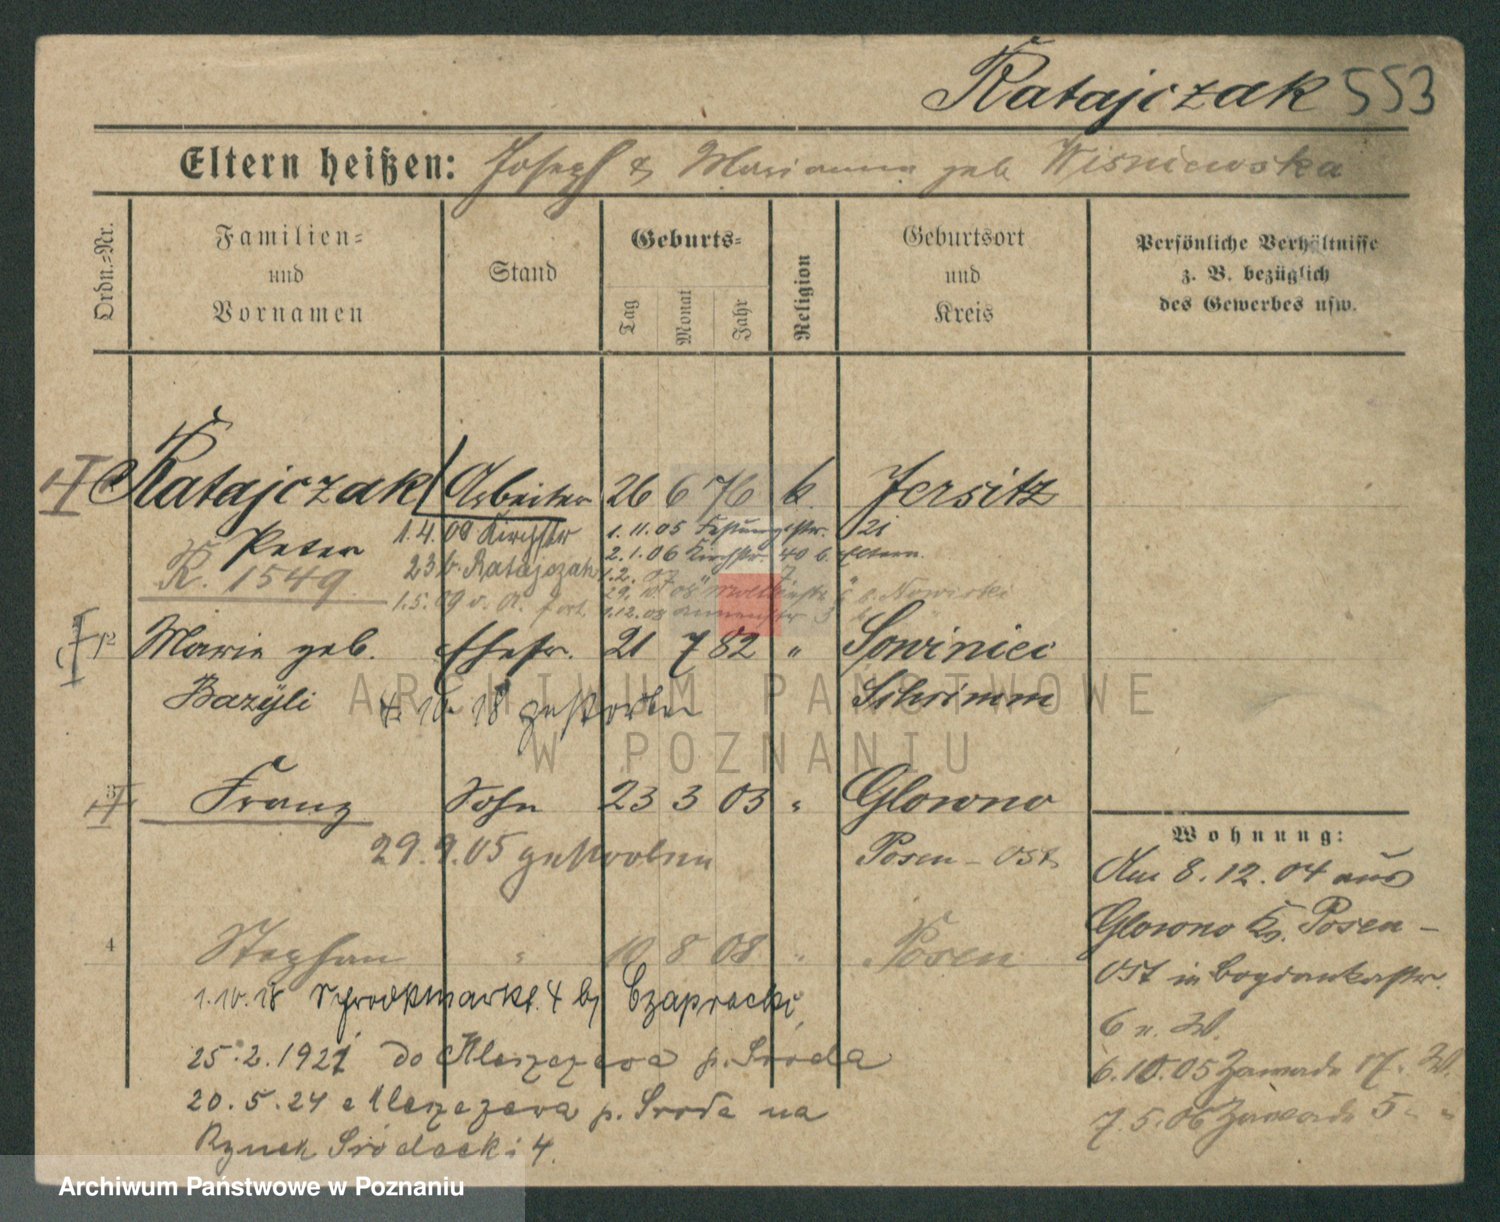 Ratajczak 553
Eltern heißen: Joseph & Marianna geb Wisniewska
Ordn.-Nr.
Familien-
und
Vornamen
Stand
Geburts-
Tag
Monat
Jahr
Religion
Geburtsort
und
Kreis
Persönliche Verhältnisse
z. B. bezüglich
des Gewerbes usw.
Ratajczak Arbeiter 26 6 76 k. Jersitz
Peter
R. 1549
1.4.09 Kirchstr
23 b. Ratajczak
1.5.09 v. A.
1.11.05 Festungsstr. 21
2.1.06 Kirchstr. 40 b. Eltern.
1.2.07 " 7 "
1.12.08
2 Marie geb. Ehefr. 21 7 82 " Sowiniec
Bazyli Schrimm
10. 18 gestorben
3 Franz Sohn 23 3 03 " Glowno
29.9.05 gestorben Posen-Ost
4 Stephan " 10 8 08 " Posen
1.10.18 Schrodkmarkt. 4 b/ Czapracki,
25.2.1921 do Mleczewa p. Sroda
20.5.24 z Mleczewa p. Sroda na
Rynek Sródecki 4.
Wohnung:
Am 8.12.04 aus
Glowno Kr. Posen-
Ost in Bogdankastr.
6 n. W.
6.10.05 Zawade 17. W.
7.5.06 Zawade 5 " "
ARCHIWUM PAŃSTWOWE
W POZNANIU
Archiwum Państwowe w Poznaniu